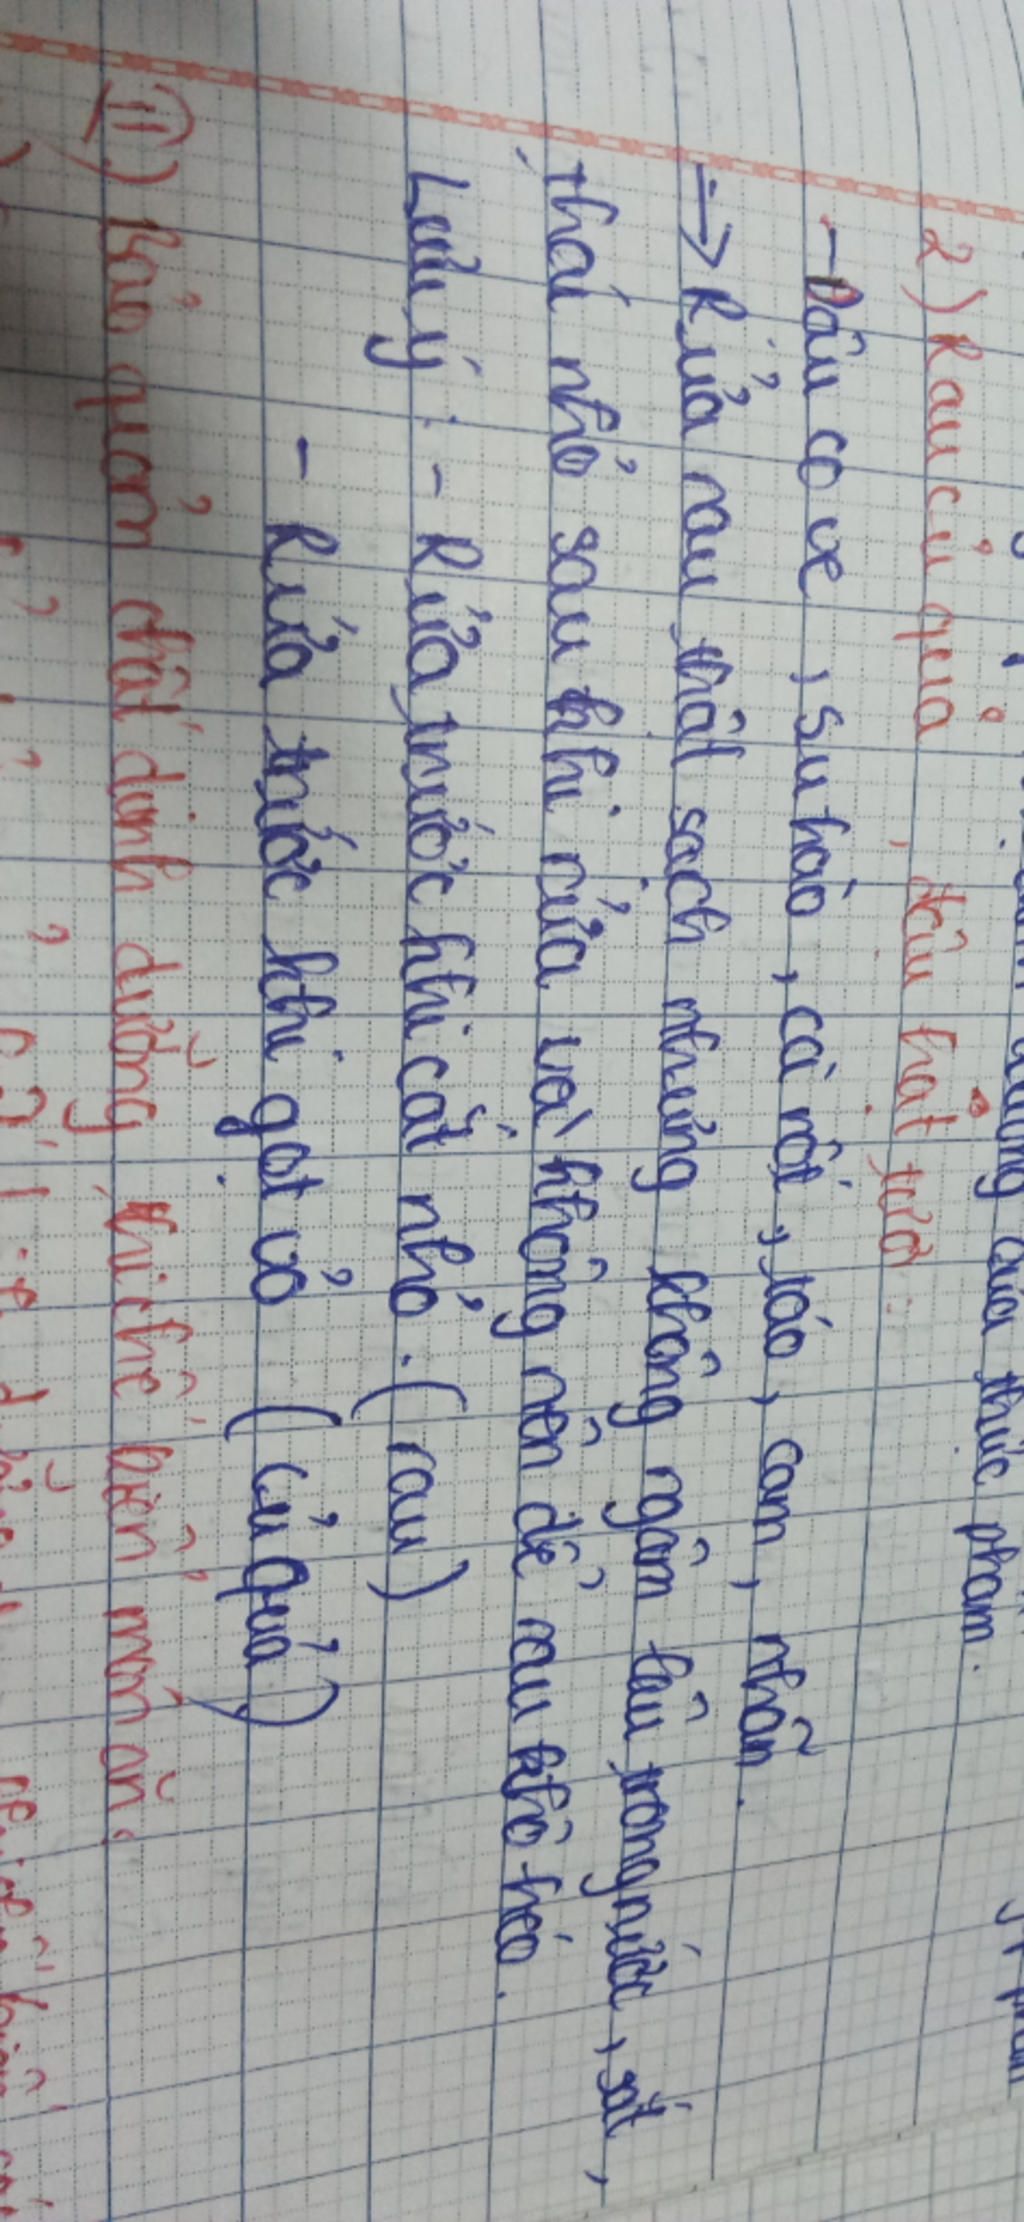 dưỡng của thức phẩm.
2) Rau củ quả, đậu hạt tươi:
- Đậu co ve, su hào, cà rốt, táo, cam, nhãn.
→ Rửa rau thật sạch nhưng không ngâm lâu trong nước, cắt,
thái nhỏ sau khi rửa và không nên để rau khô héo.
Lưu ý: - Rửa trước khi cắt nhỏ. (rau)
- Rửa trước khi gọt vỏ (củ quả)
II) Bảo quản chất dinh dưỡng khi chế biến món ăn.